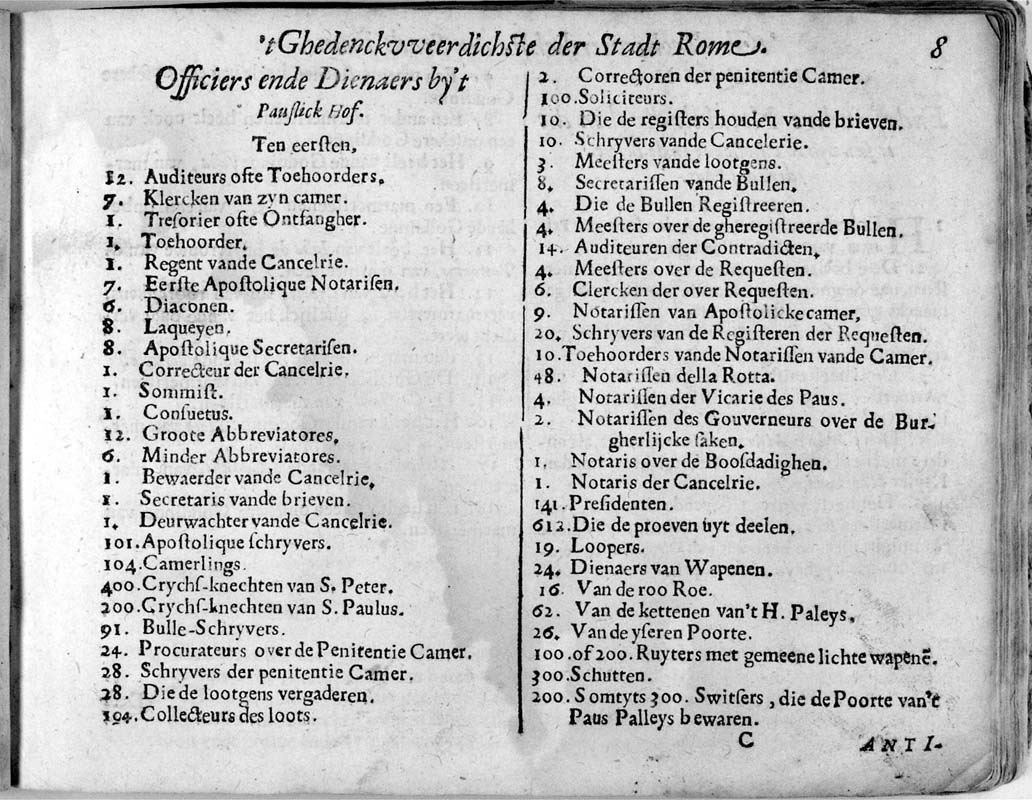 'tGhedenckvveerdichſte der Stadt Rome. 8
Officiers ende Dienaers by't
Pauſlick Hof.
Ten eerſten,
12. Auditeurs ofte Toehoorders,
7. Klercken van zyn camer.
1. Treſorier ofte Ontfangher.
1. Toehoorder.
1. Regent vande Cancelrie.
7. Eerſte Apoſtolique Notariſen.
6. Diaconen.
8. Laqueyen.
8. Apoſtolique Secretariſen.
1. Correcteur der Cancelrie.
1. Sommiſt.
1. Conſuetus.
12. Groote Abbreviatores.
6. Minder Abbreviatores.
1. Bewaerder vande Cancelrie,
1. Secretaris vande brieven.
1. Deurwachter vande Cancelrie.
101. Apoſtolique ſchryvers.
104. Camerlings.
400. Crychſ-knechten van S. Peter.
200. Crychſ-knechten van S. Paulus.
91. Bulle-Schryvers.
24. Procurateurs over de Penitentie Camer.
28. Schryvers der penitentie Camer.
28. Die de lootgens vergaderen.
104. Collecteurs des loots.
2. Correctoren der penitentie Camer.
100. Soliciteurs.
10. Die de regiſters houden vande brieven.
10. Schryvers vande Cancelerie.
3. Meeſters vande lootgens.
8. Secretariſſen vande Bullen.
4. Die de Bullen Regiſtreeren.
4. Meeſters over de gheregiſtreerde Bullen.
14. Auditeuren der Contradicten.
4. Meeſters over de Requeſten.
6. Clercken der over Requeſten.
9. Notariſſen van Apoſtolicke camer,
20. Schryvers van de Regiſteren der Requeſten.
10. Toehoorders vande Notariſſen vande Camer.
48. Notariſſen della Rotta.
4. Notariſſen der Vicarie des Paus.
2. Notariſſen des Gouverneurs over de Bur-
gherlijcke ſaken.
1. Notaris over de Boosdadighen.
1. Notaris der Cancelrie.
141. Preſidenten.
612. Die de proeven uyt deelen.
19. Loopers.
24. Dienaers van Wapenen.
16. Van de roo Roe.
62. Van de kettenen van't H. Paleys.
26. Van de yſeren Poorte.
100. of 200. Ruyters met gemeene lichte wapenē.
300. Schutten.
200. Somtyts 300. Switſers, die de Poorte van't
Paus Palleys bewaren.
C ANTI-